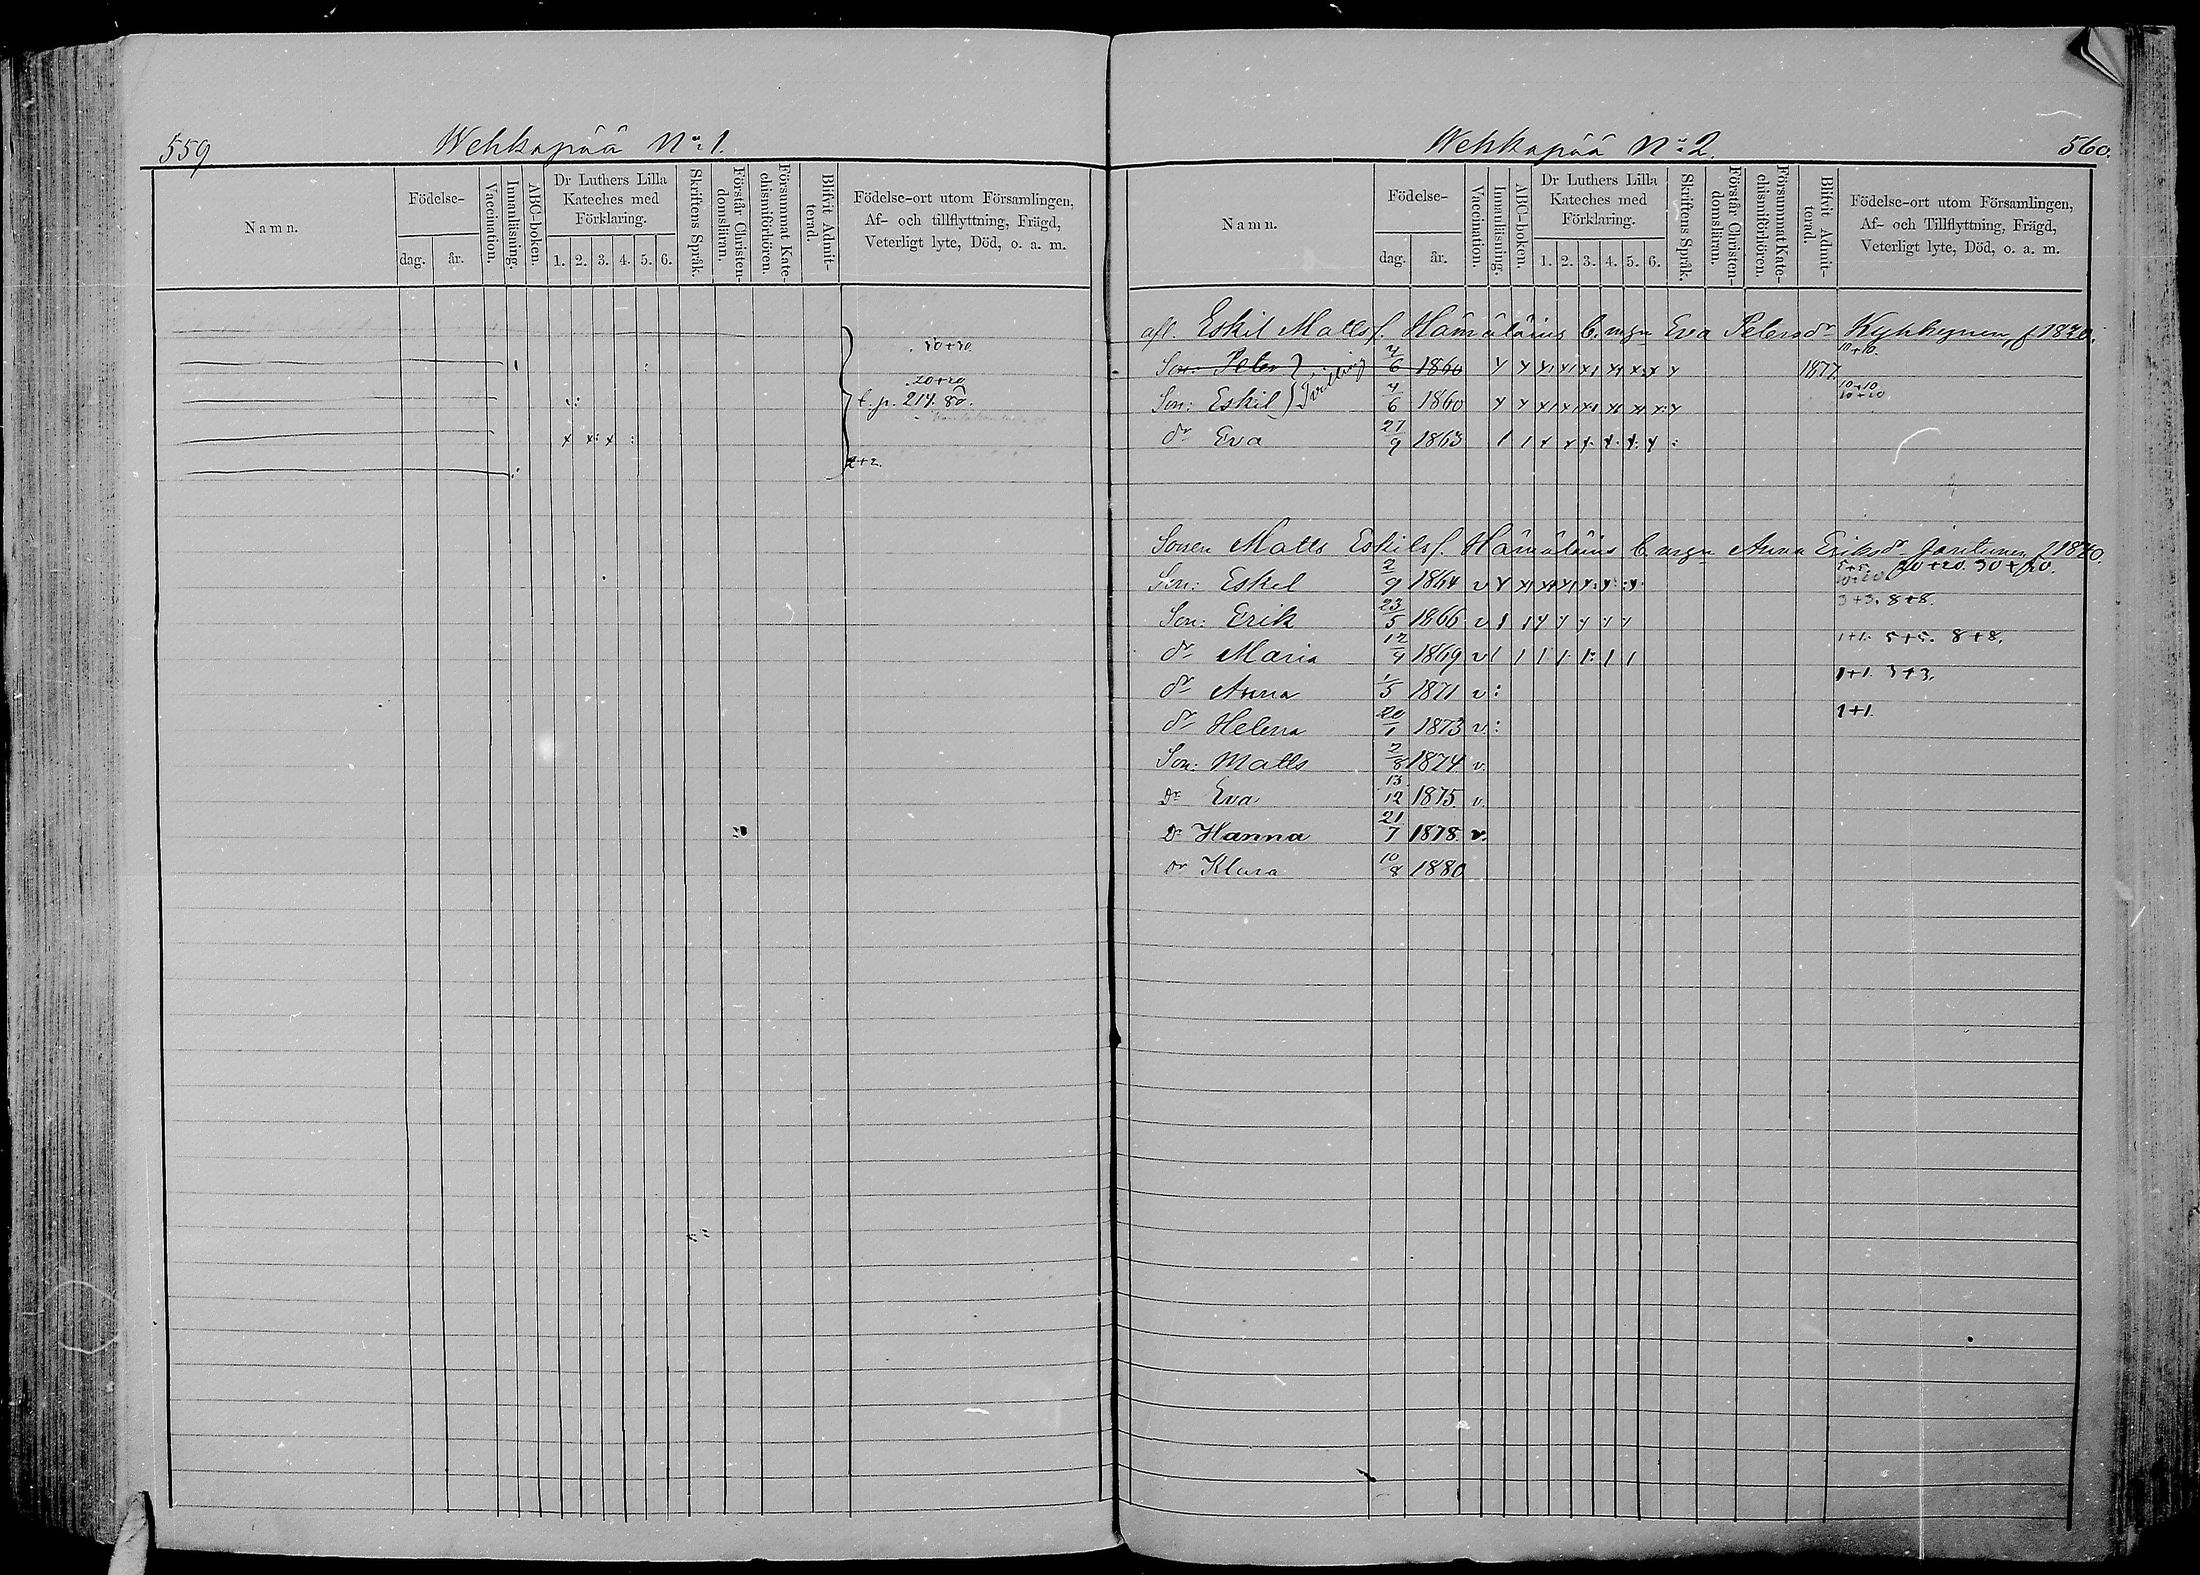 559.
Wehkapää No 1.
Namn.
Födelse-
dag.
år.
Vaccination.
Innanläsning.
ABC-boken.
Dr Luthers Lilla Kateches med Förklaring.
1. 2. 3. 4. 5. 6.
Skriftens Språk.
Förstår Christendomsläran.
Försummat Katechismiförhören.
Blifvit Admitterad.
Födelse-ort utom Församlingen,
Af- och tillflyttning, Frägd,
Veterligt lyte, Död, o. a. m.
20+20
t. p. 214. 80.
x x: x :
2+2.
Wehkapää No 2.
560.
Namn.
Födelse-
dag.
år.
Vaccination.
Innanläsning.
ABC-boken.
Dr Luthers Lilla Kateches med Förklaring.
1. 2. 3. 4. 5. 6.
Skriftens Språk.
Förstår Christendomsläran.
Försummat Katechismiförhören.
Blifvit Admitterad.
Födelse-ort utom Församlingen,
Af- och Tillflyttning, Frägd,
Veterligt lyte, Död, o. a. m.
afl. Eskil Mattsf. Hämäläins Eva Petersdr Kyhkynen, f 1820.
10+10.
Son: Peter 4/6 1860 1877
Tvilling
10+10
Son: Eskil 4/6 1860
dr Eva 27/9 1863
Sonen Matts Eskilsf. Hämäläins Anna Eriksdr Jäntunen f 1840.
5+5. 20+20. 30+20.
Son: Eskel 2/9 1864 v
3+3. 8+8.
Son: Erik 23/5 1866 v
1+1. 5+5. 8+8.
dr Maria 12/4 1869 v
1+1. 3+3.
dr Anna 1/5 1871 v :
1+1.
dr Helena 20/1 1873 v. :
Son: Matts 2/8 1874 v.
Dr Eva 13/12 1875 v.
Dr Hanna 21/7 1878. v.
Dr Klara 10/8 1880